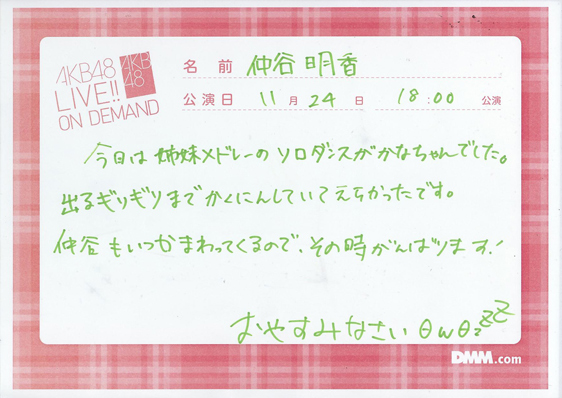 AKB48
LIVE!!
ON DEMAND
AKB
48
名前 仲谷明香
公演日 11月24日 18:00 公演
今日は姉妹メドレーのソロダンスがかなちゃんでした。
出るギリギリまでかくにんしていてえらかったです。
仲谷もいつかまわってくるので、その時がんばります!
おやすみなさいθωθzzZZ
DMM.com